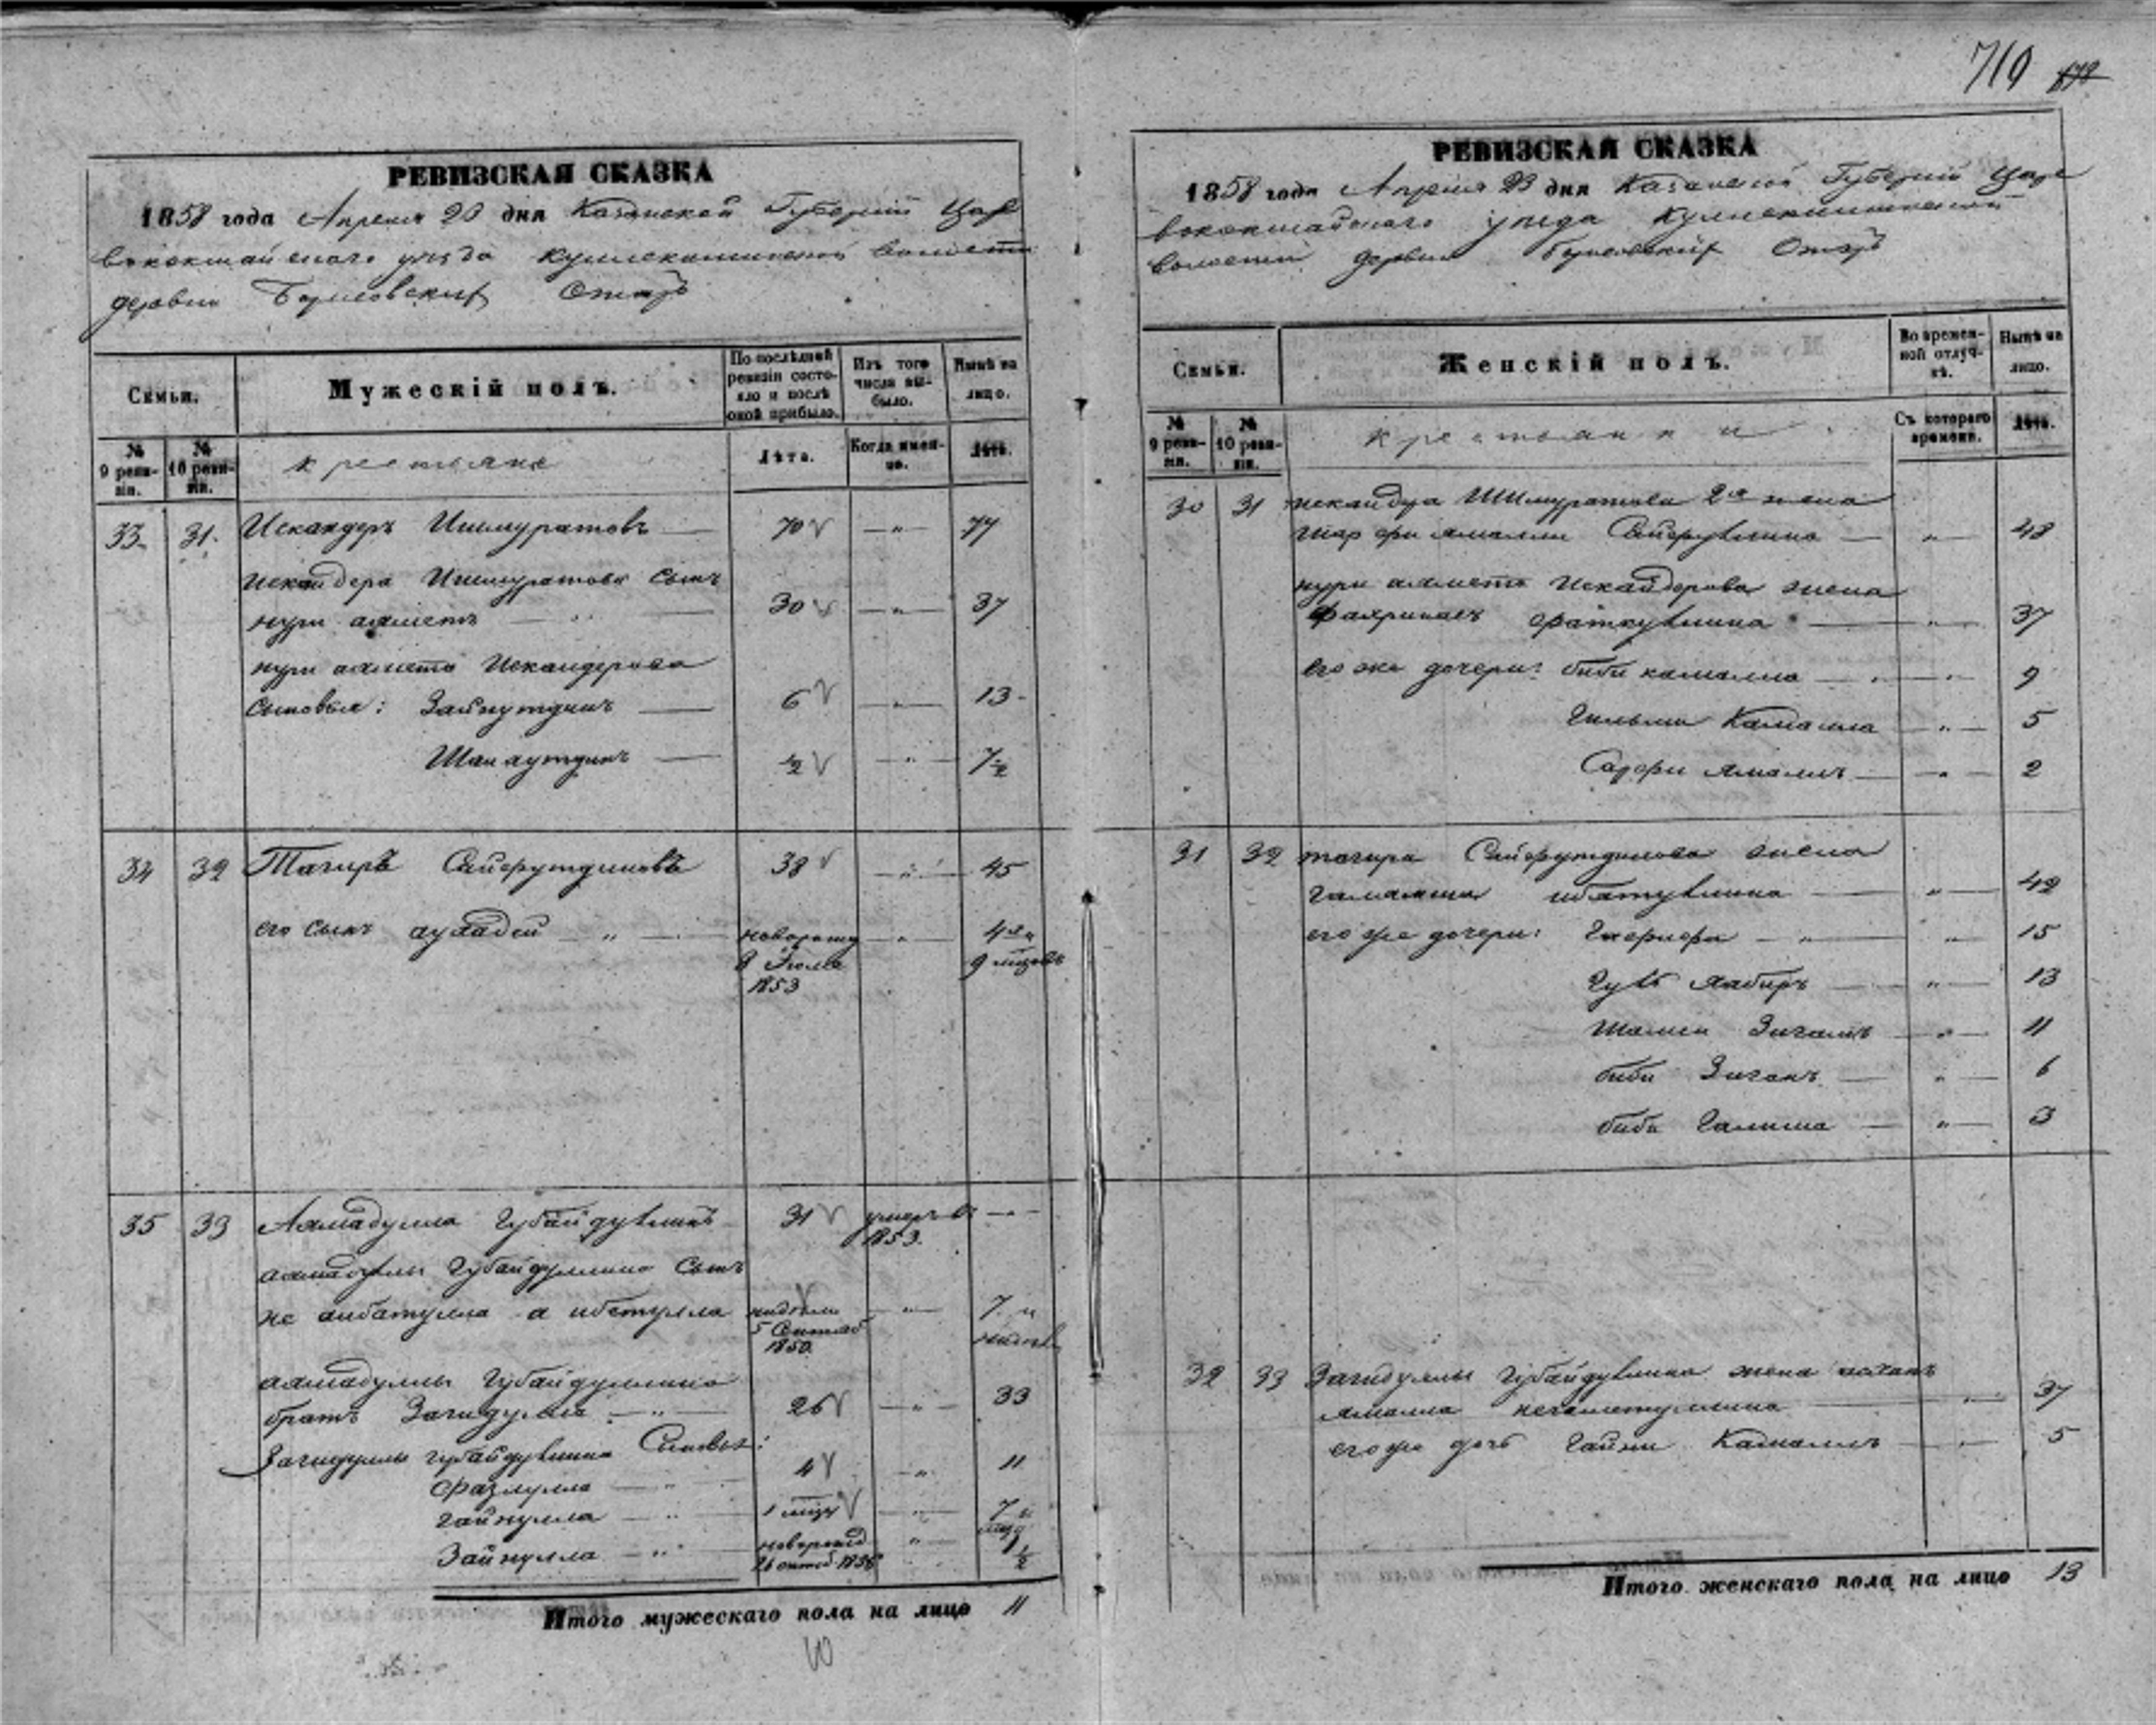 710 678
РЕВИЗСКАЯ СКАЗКА
1858 года Апреля 20 дня Казанской Губернии Царе
вококшайскаго уезда волости
деревни Отаръ
Семьи.
Мужескій полъ.
По послѣдней ревизіи состояло и послѣ оной прибыло.
Изъ того числа выбыло.
Нынѣ на лицо.
№ 9 ревизіи.
№ 10 ревизіи.
крестьяне
Лѣта.
Когда именно.
Лѣта.
33 31 Искандеръ Ишмуратовъ — 70 — " — 77
Искандера Ишмуратова сынъ
нури ахметъ — 30 — " — 37
нури ахмета Искандерова
сыновья: Зайнутдинъ — 6 — " — 13
Шагаутдинъ — ½ — " — 7½
34 32 Тагиръ Сайфутдиновъ 38 — " — 45
его сынъ — " — новорожд — " — 4 и
8 Іюля 9 мцовъ
1853
35 33 Ахмадулла Губайдуллинъ 31 умеръ в — " —
1853.
ахмадуллы Губайдуллина сынъ
не аибатулла а ибетулла — " — 7 и
5 Сентяб
1850
ахмадуллы Губайдуллина
братъ Загидулла — " — 26 — " — 33
Загидуллы губайдуллина Сыновья:
Фазлулла — " — 4 — " — 11
гайнулла — " — 1 мцъ — " — 7 и
Зайнулла — " — новорожд — " — 1½
26 октяб 1856
Итого мужескаго пола на лицо 11
РЕВИЗСКАЯ СКАЗКА
1858 года Апреля 23 дня Казанской Губерніи Царе
вококшайскаго уезда
волости деревни Отаръ
Семьи.
Женскій полъ.
Во временной отлучкѣ.
Нынѣ на лицо.
№ 9 ревизіи.
№ 10 ревизіи.
крестьянки
Съ котораго времени.
Лѣта.
30 31 искандра Ишмуратова 2я жена
шарфи ямалли Сайфуллина — " — 48
нури ахмета Искандерова жена
Фахринасъ фаткуллина — " — 37
его же дочери: биби камалла — " — 9
Гильми Камалла — " — 5
Садри ямалъ — " — 2
31 32 тагира Сайфутдинова жена
ибятуллина — " — 42
его же дочери: — " — 15
Гуль — " — 13
Шамси — " — 11
биби — " — 6
биби Галиша — " — 3
32 33 Загидуллы губайдуллина жена
ямалла — " — 37
его же дочь Гайни Камалъ — " — 5
Итого женскаго пола на лицо 13